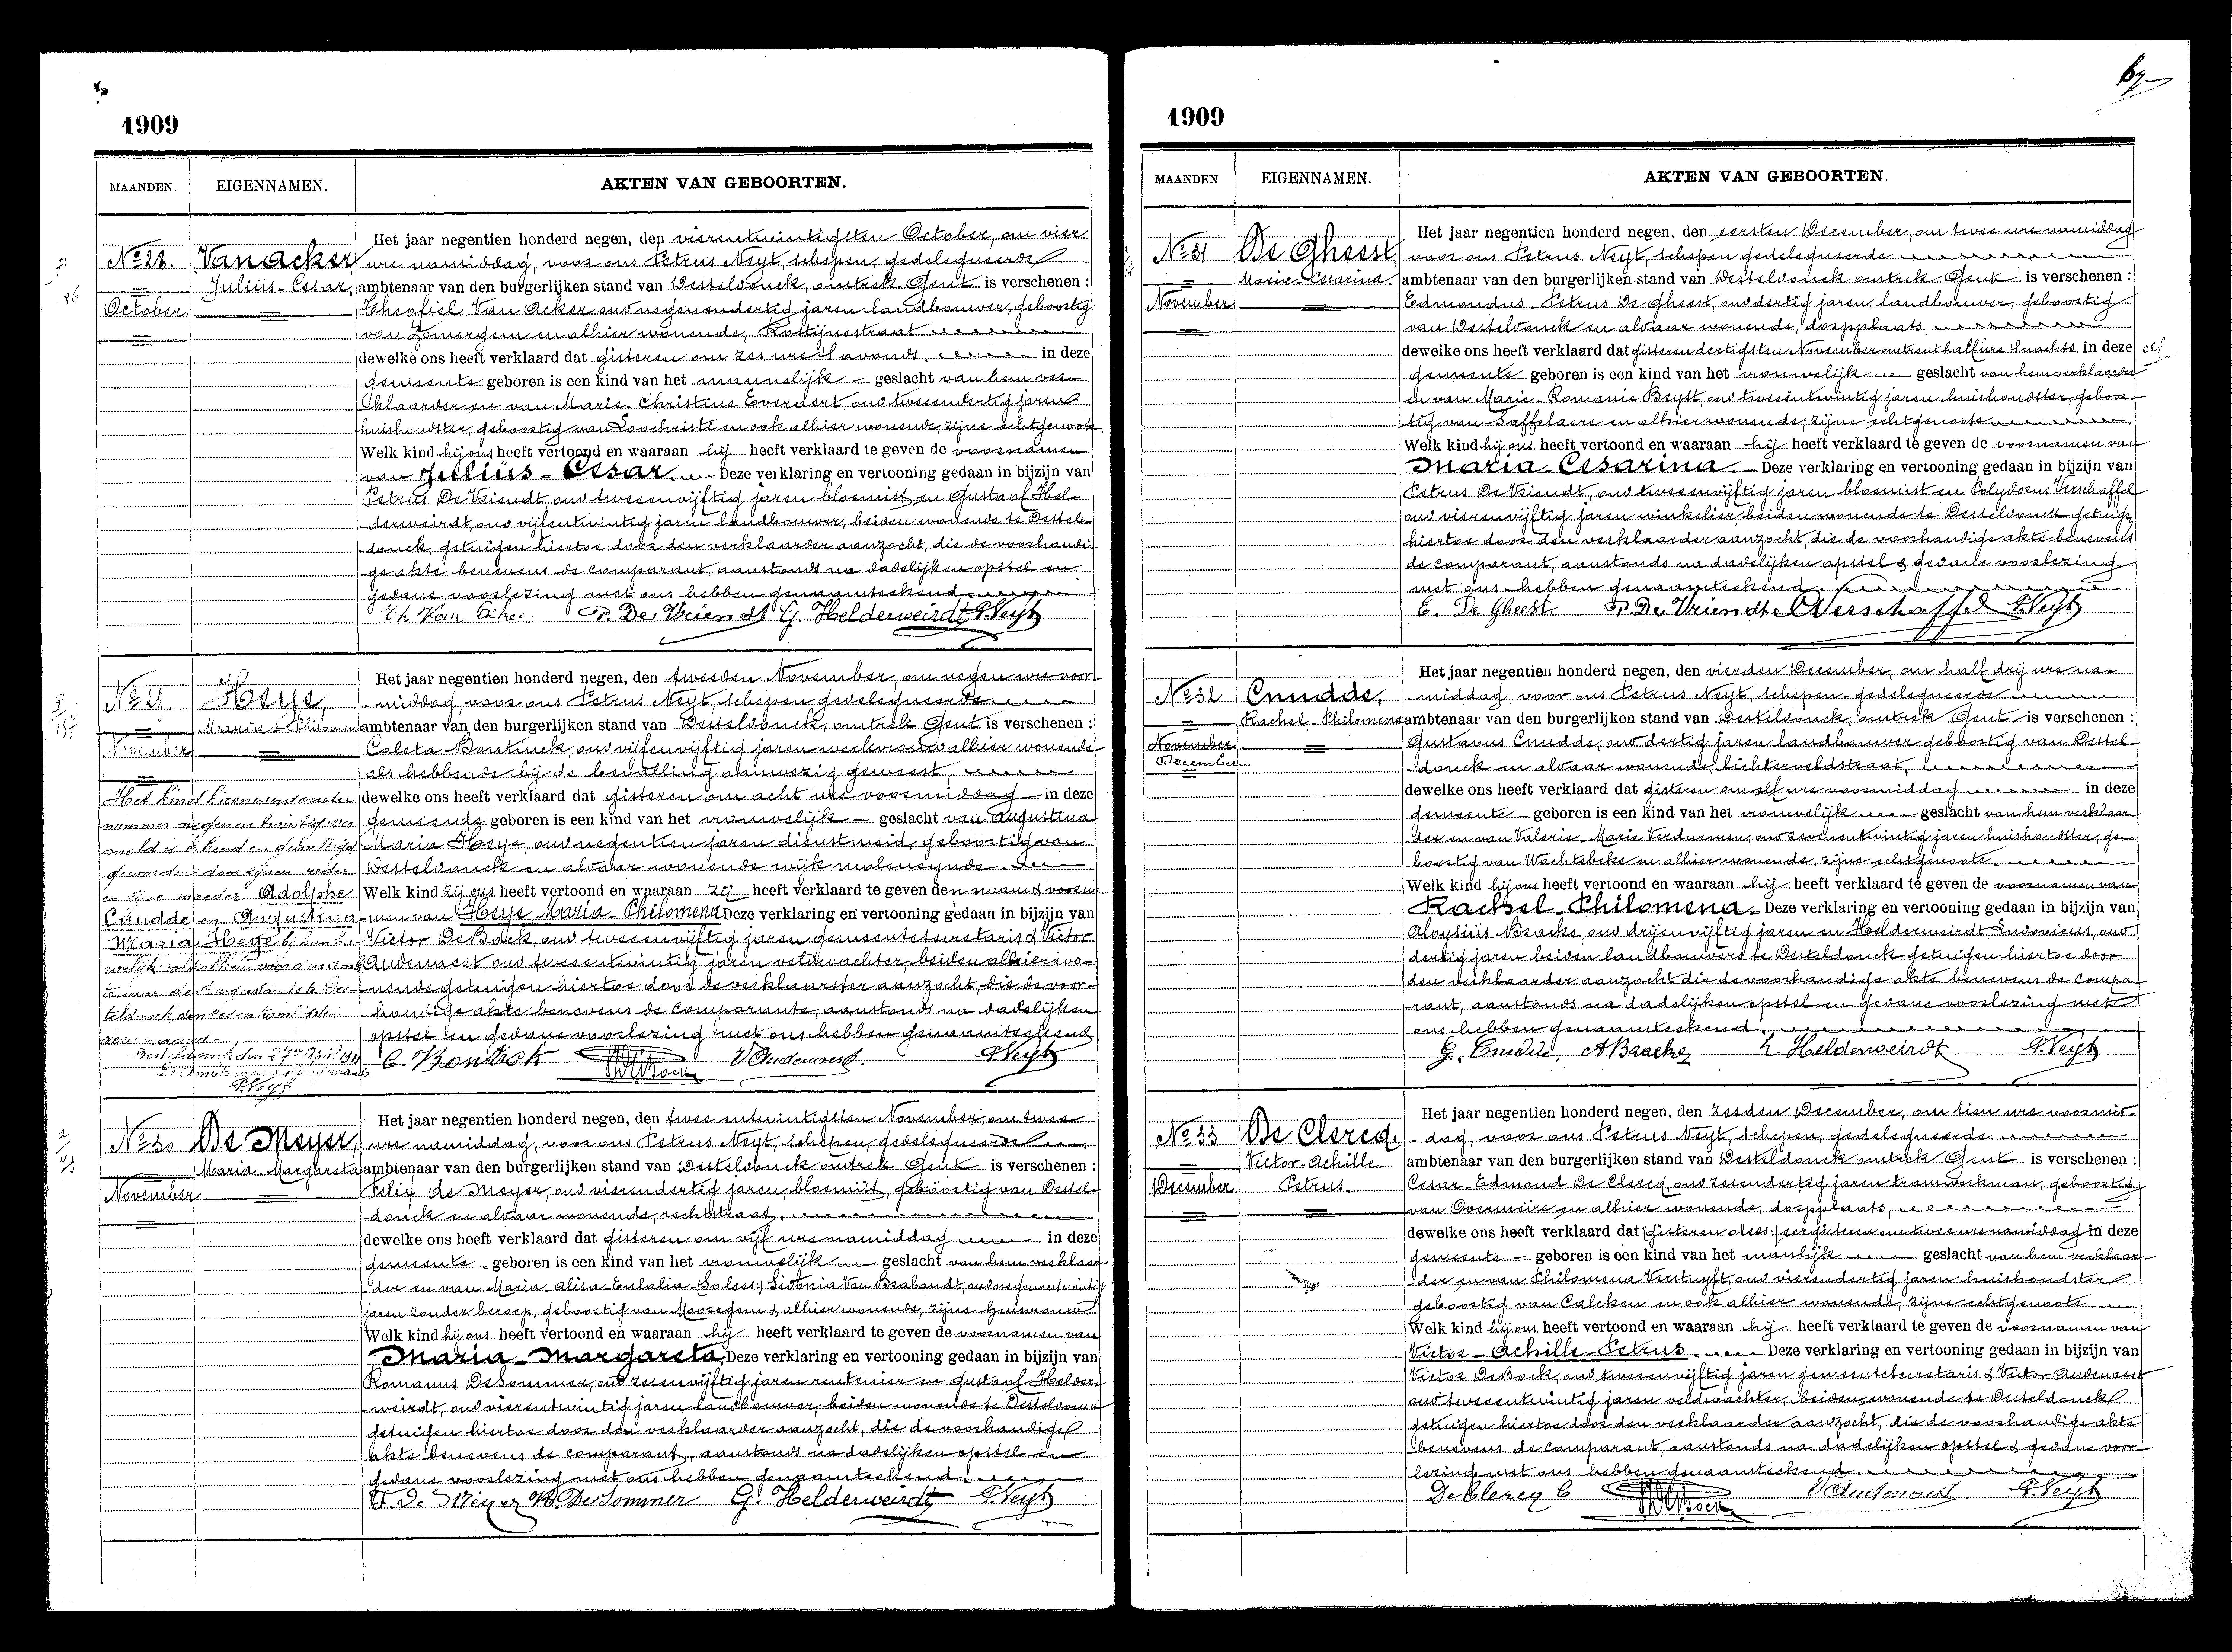 1909
MAANDEN.
EIGENNAMEN.
AKTEN VAN GEBOORTEN.
No 28.
October
Van Acker
Julius-Cesar.
Het jaar negentien honderd negen, den vierentwintigsten October, om vier
ure namiddag, voor ons Petrus Neyt, schepen, gedelegueerde
ambtenaar van den burgerlijken stand van Desteldonck, omtrek Gent is verschenen :
Theofiel Van Acker, oud negenendertig jaren landbouwer, geboortig
van Zomergem en alhier wonende, Rostijnestraat
dewelke ons heeft verklaard dat gisteren om zes ure 's avonds, in deze
gemeente geboren is een kind van het mannelijk geslacht van hem ver-
klaarder en van Marie-Christine Everaert, oud tweeendertig jaren
huishoudster, geboortig van Loochristi en ook alhier wonende, zijne echtgenoote.
Welk kind hij ons heeft vertoond en waaraan hij heeft verklaard te geven de voornamen
van Julius-Cesar. Deze verklaring en vertooning gedaan in bijzijn van
Petrus De Vriendt, oud tweeenvijftig jaren bloemist, en Gustaaf Hel-
derweirdt, oud vijfentwintig jaren landbouwer, beiden wonende te Destel-
donck, getuigen hiertoe door den verklaarder aanzocht, die de voorhandi-
ge akte benevens de comparant, aanstonds na dadelijken opstel en
gedane voorlezing met ons hebben genaamteekend.
P. De Vriendt G. Helderweirdt P. Neyt
No 29
November
Heye,
Maria-Philomena
Het kind hiernevens onder
nummer negen en twintig ver-
meld is erkend en gewettigd
geworden door zijnen vader
en zijne moeder Adolphe
Cnudde en Augustina
Maria Heye bij hun hu-
Desteldonck den 27en April 1911
P. Neyt
Het jaar negentien honderd negen, den tweeden November, om negen ure voor-
middag, voor ons Petrus Neyt, schepen gedelegueerde
ambtenaar van den burgerlijken stand van Desteldonck, omtrek Gent is verschenen :
Coleta Bontinck, oud vijfenvijftig jaren werkvrouw alhier wonende
als hebbende bij de bevalling aanwezig geweest,
dewelke ons heeft verklaard dat gisteren om acht ure voormiddag in deze
gemeente geboren is een kind van het vrouwelijk geslacht van Augustina
Maria Heye oud negentien jaren dienstmeid, geboortig van
Desteldonck en aldaar wonende wijk moleneynde.
Welk kind zij ons heeft vertoond en waaraan zij heeft verklaard te geven den naam & voorna-
men van Heye Maria-Philomena Deze verklaring en vertooning gedaan in bijzijn van
Victor De Bock, oud tweeenvijftig jaren gemeentesecretaris & Victor
Audenaert, oud tweeentwintig jaren veldwachter, beiden alhier wo-
nende getuigen hiertoe door de verklaarster aanzocht, die de voor-
handige akte benevens de comparante, aanstonds na dadelijken
opstel en gedane voorlezing met ons hebben genaamteekend.
C. Bontick V Oudenaert. P. Neyt
No 30
November
De Meyer,
Maria-Margareta
Het jaar negentien honderd negen, den twee entwintigsten November, om twee
ure namiddag, voor ons Petrus Neyt, schepen, gedelegueerde
ambtenaar van den burgerlijken stand van Desteldonck omtrek Gent is verschenen :
Felix de Meyer, oud vierendertig jaren, bloemist, geboortig van Destel-
donck en aldaar wonende, rechtstraat,
dewelke ons heeft verklaard dat gisteren om vijf ure namiddag in deze
gemeente geboren is een kind van het vrouwelijk geslacht van hem verklaar-
der en van Maria-Alisa-Eulalia Sidonia Van Brabandt, oud negenentwintig
jaren zonder beroep, geboortig van Moorsegem & alhier wonende, zijne huisvrouw
Welk kind hij ons heeft vertoond en waaraan hij heeft verklaard te geven de voornamen van
Maria-Margareta, Deze verklaring en vertooning gedaan in bijzijn van
Romanus De Sommer, oud zesenvijftig jaren rentenier en Gustaaf Helder-
weirdt, oud vierentwintig jaren landbouwer, beiden wonende te Desteldonck
getuigen hiertoe door den verklaarder aanzocht, die de voorhandige
akte benevens de comparant, aanstonds na dadelijken opstel en
gedane voorlezing met ons hebben genaamteekend.
F. De Meyer R. De Sommer G. Helderweirdt P. Neyt
1909
MAANDEN
EIGENNAMEN.
AKTEN VAN GEBOORTEN.
No 31
November
De Gheest,
Marie-Cesarina.
Het jaar negentien honderd negen, den eersten December, om twee ure namiddag
voor ons Petrus Neyt, schepen gedelegueerde
ambtenaar van den burgerlijken stand van Desteldonck omtrek Gent is verschenen :
Edmondus-Petrus De Gheest, oud dertig jaren landbouwer, geboortig
van Desteldonck en aldaar wonende, dorpplaats
dewelke ons heeft verklaard dat gisteren dertigsten November omtrent half ure 's nachts in deze
gemeente geboren is een kind van het vrouwelijk geslacht van hem verklaarder
en van Marie-Romanie Beyst, oud tweeentwintig jaren huishoudster, geboor-
tig van Saffelaere en alhier wonende, zijne echtgenoote
Welk kind hij ons heeft vertoond en waaraan hij heeft verklaard te geven de voornamen van
Maria Cesarina Deze verklaring en vertooning gedaan in bijzijn van
Petrus De Vriendt, oud tweeenvijftig jaren bloemist en Polydoris Verschaffel
oud vierenvijftig jaren winkelier, beiden wonende te Desteldonck getuigen
hiertoe door den verklaarder aanzocht, die de voorhandige akte benevens
de comparant, aanstonds na dadelijken opstel & gedane voorlezing
met ons hebben genaamteekend.
E. De Gheest P. De Vriendt Verschaffel P. Neyt
No 32
November
December
Cnudde,
Rachel-Philomena
Het jaar negentien honderd negen, den vierden December, om half drij ure na-
middag, voor ons Petrus Neyt, schepen gedelegueerde
ambtenaar van den burgerlijken stand van Desteldonck, omtrek Gent is verschenen :
Gustavus Cnudde, oud dertig jaren landbouwer geboortig van Destel-
donck en aldaar wonende, lichterveldstraat,
dewelke ons heeft verklaard dat gisteren om elf ure voormiddag in deze
gemeente geboren is een kind van het vrouwelijk geslacht van hem verklaar-
der en van Valerie-Marie Verdurmen, oud zevenentwintig jaren huishoudster, ge-
boortig van Wachtebeke en alhier wonende, zijne echtgenoote.
Welk kind hij ons heeft vertoond en waaraan hij heeft verklaard te geven de voornamen van
Rachel-Philomena Deze verklaring en vertooning gedaan in bijzijn van
Aloysiüs Bracke, oud drijenvijftig jaren en Helderweirdt, Ludovicus, oud
dertig jaren beiden landbouwers te Desteldonck getuigen hiertoe door
den verklaarder aanzocht die de voorhandige akte benevens de compa-
rant, aanstonds na dadelijken opstel en gedane voorlezing met
ons hebben genaamteekend.
G. Cnudde, A Bracke L. Helderweirdt P. Neyt
No 33
December.
De Clercq,
Victor-Achille-
Petrus.
Het jaar negentien honderd negen, den zesden December, om tien ure voormid-
dag, voor ons Petrus Neyt, schepen gedelegueerde
ambtenaar van den burgerlijken stand van Desteldonck omtrek Gent is verschenen :
Cesar-Edmond De Clercq, oud zesendertig jaren tramwerkman, geboortig
van Overmeire en alhier wonende, dorpplaats,
dewelke ons heeft verklaard dat (gisteren eergisteren om twee ure namiddag in deze
gemeente geboren is een kind van het manlijk geslacht van hem verklaar-
der en van Philomena Verstuyft, oud vierendertig jaren huishoudster
geboortig van Calcken en ook alhier wonende, zijne echtgenoote
Welk kind hij ons heeft vertoond en waaraan hij heeft verklaard te geven de voornamen van
Victor-Achille-Petrus. Deze verklaring en vertooning gedaan in bijzijn van
Victor De Bock, oud tweeenvijftig jaren gemeentesecretaris & Victor Audenaert
oud tweeentwintig jaren veldwachter, beiden wonende te Desteldonck
getuigen hiertoe door den verklaarder aanzocht, die de voorhandige akte
benevens de comparant, aanstonds na dadelijken opstel & gedane voor-
lezing met ons hebben genaamteekend.
De Clercq C V Oudenaert P. Neyt